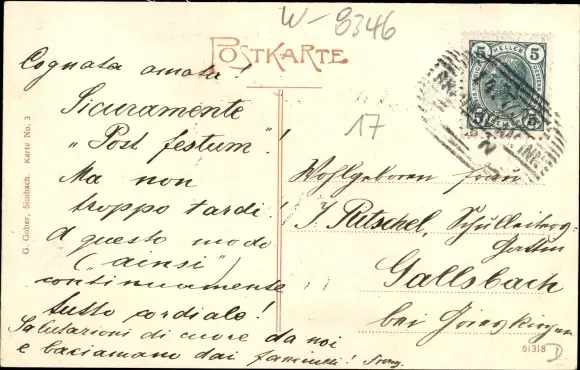 W-8346
POSTKARTE
5 HELLER 5
17
Cognata amata!
Sicuramente
"Post festum"!
Ma non
troppo tardi!
A questo modo
("ainsi")
continuamente
tutto cordiale!
Salutazioni di cuore da noi
e baciamano dai fanciulli!
Wohlgeboren Frau
J. Rutschel, Schulleiters-
Gattin
Gallsbach
bei Grieskirchen
G. Gober, Simbach. Karte No. 3
61318
D